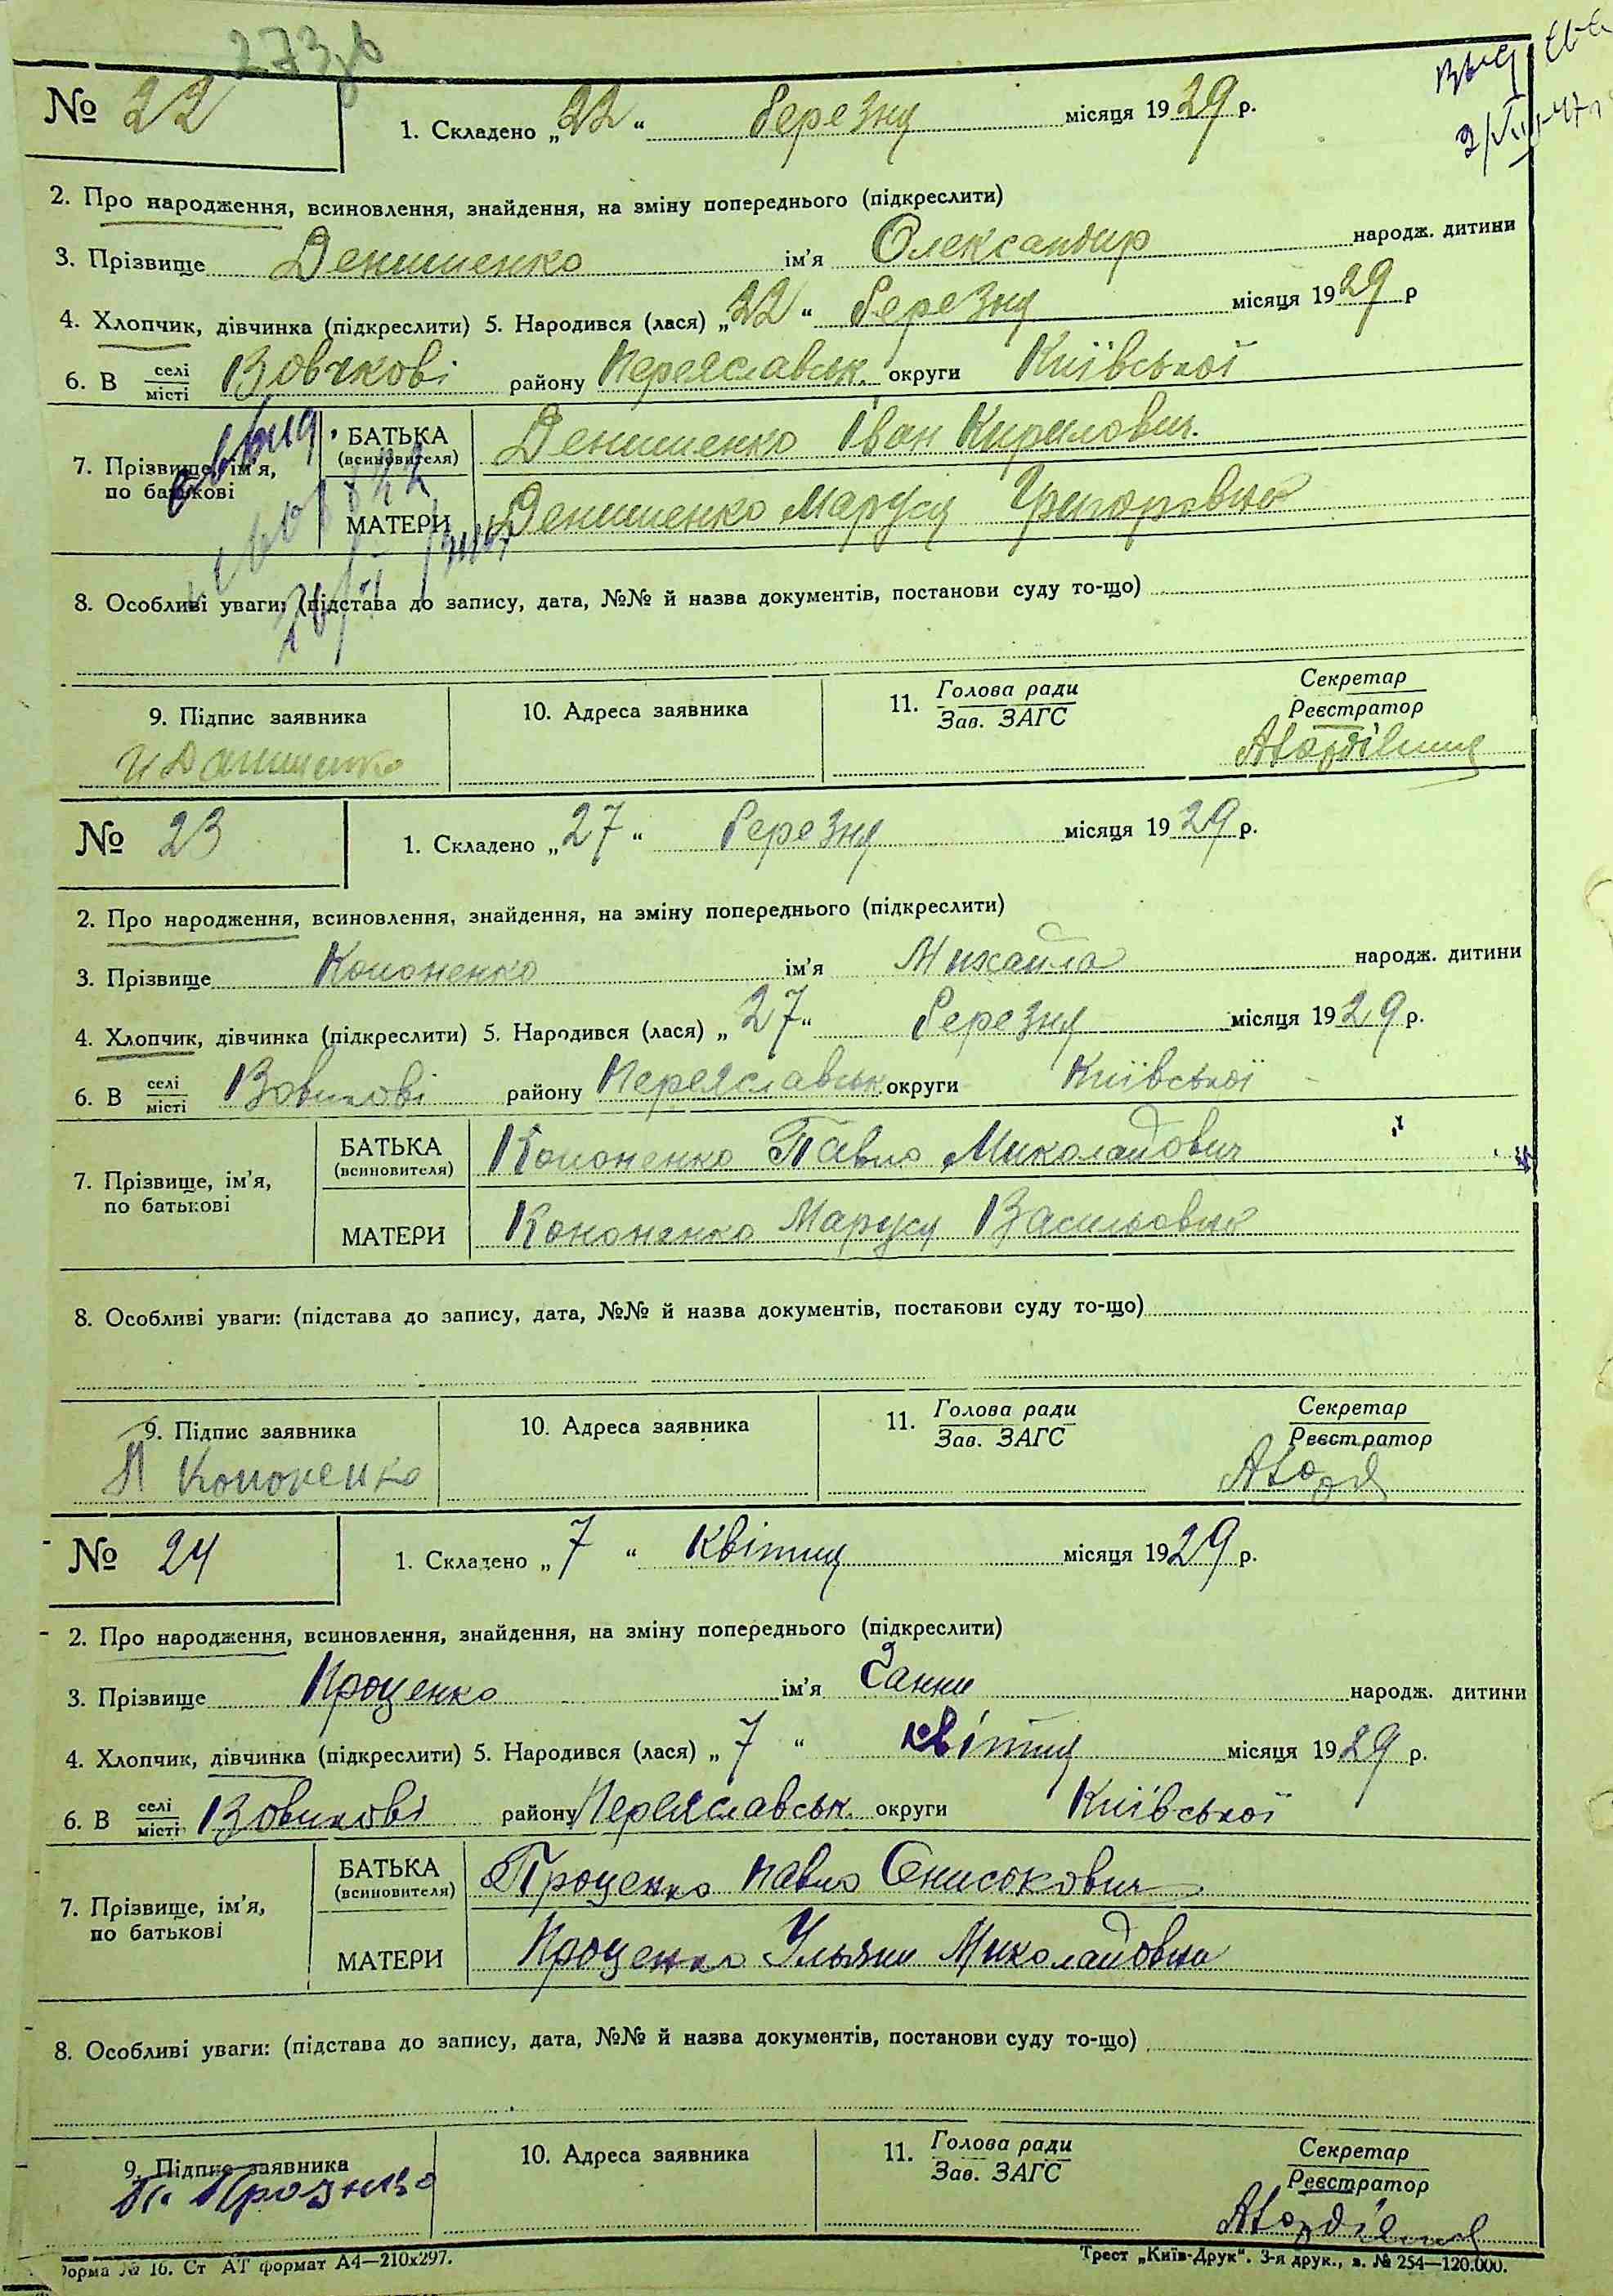 273зв
№ 22
1. Складено „22“ березня місяця 1929 р.
2. Про народження, всиновлення, знайдення, на зміну попереднього (підкреслити)
3. Прізвище Денишенко ім'я Олександр народж. дитини
4. Хлопчик, дівчинка (підкреслити) 5. Народився (лася) „22“ березня місяця 1929 р
6. В селі місті Вовчкові району Переяславськ. округи Київської
7. Прізвище, ім'я, по батькові
БАТЬКА (всиновителя) Денишенко Іван Кирилович.
МАТЕРИ Денишенко Маруся Григоровна
8. Особливі уваги: (підстава до запису, дата, №№ й назва документів, постанови суду то-що)
9. Підпис заявника
10. Адреса заявника
11. Голова ради Зав. ЗАГС
Секретар Реєстратор
№ 23
1. Складено „27“ березня місяця 1929 р.
2. Про народження, всиновлення, знайдення, на зміну попереднього (підкреслити)
3. Прізвище Кононенко ім'я Михайла народж. дитини
4. Хлопчик, дівчинка (підкреслити) 5. Народився (лася) „27“ березня місяця 1929 р.
6. В селі місті Вовчкові району Переяславськ. округи Київської
7. Прізвище, ім'я, по батькові
БАТЬКА (всиновителя) Кононенко Павло Миколайович
МАТЕРИ Кононенко Маруся Васильовна
8. Особливі уваги: (підстава до запису, дата, №№ й назва документів, постанови суду то-що)
9. Підпис заявника
10. Адреса заявника
11. Голова ради Зав. ЗАГС
Секретар Реєстратор
П Кононенко
№ 24
1. Складено „7“ квітня місяця 1929 р.
2. Про народження, всиновлення, знайдення, на зміну попереднього (підкреслити)
3. Прізвище Проценко ім'я Ганни народж. дитини
4. Хлопчик, дівчинка (підкреслити) 5. Народився (лася) „7“ квітня місяця 1929 р.
6. В селі місті Вовчкові району Переяславськ. округи Київської
7. Прізвище, ім'я, по батькові
БАТЬКА (всиновителя) Проценко Павло Онисокович
МАТЕРИ Проценко Ульяни Миколайовни
8. Особливі уваги: (підстава до запису, дата, №№ й назва документів, постанови суду то-що)
9. Підпис заявника
10. Адреса заявника
11. Голова ради Зав. ЗАГС
Секретар Реєстратор
Форма № 16. Ст АТ формат А4—210х297.
Трест „Київ-Друк“. 3-я друк., з. № 254—120.000.